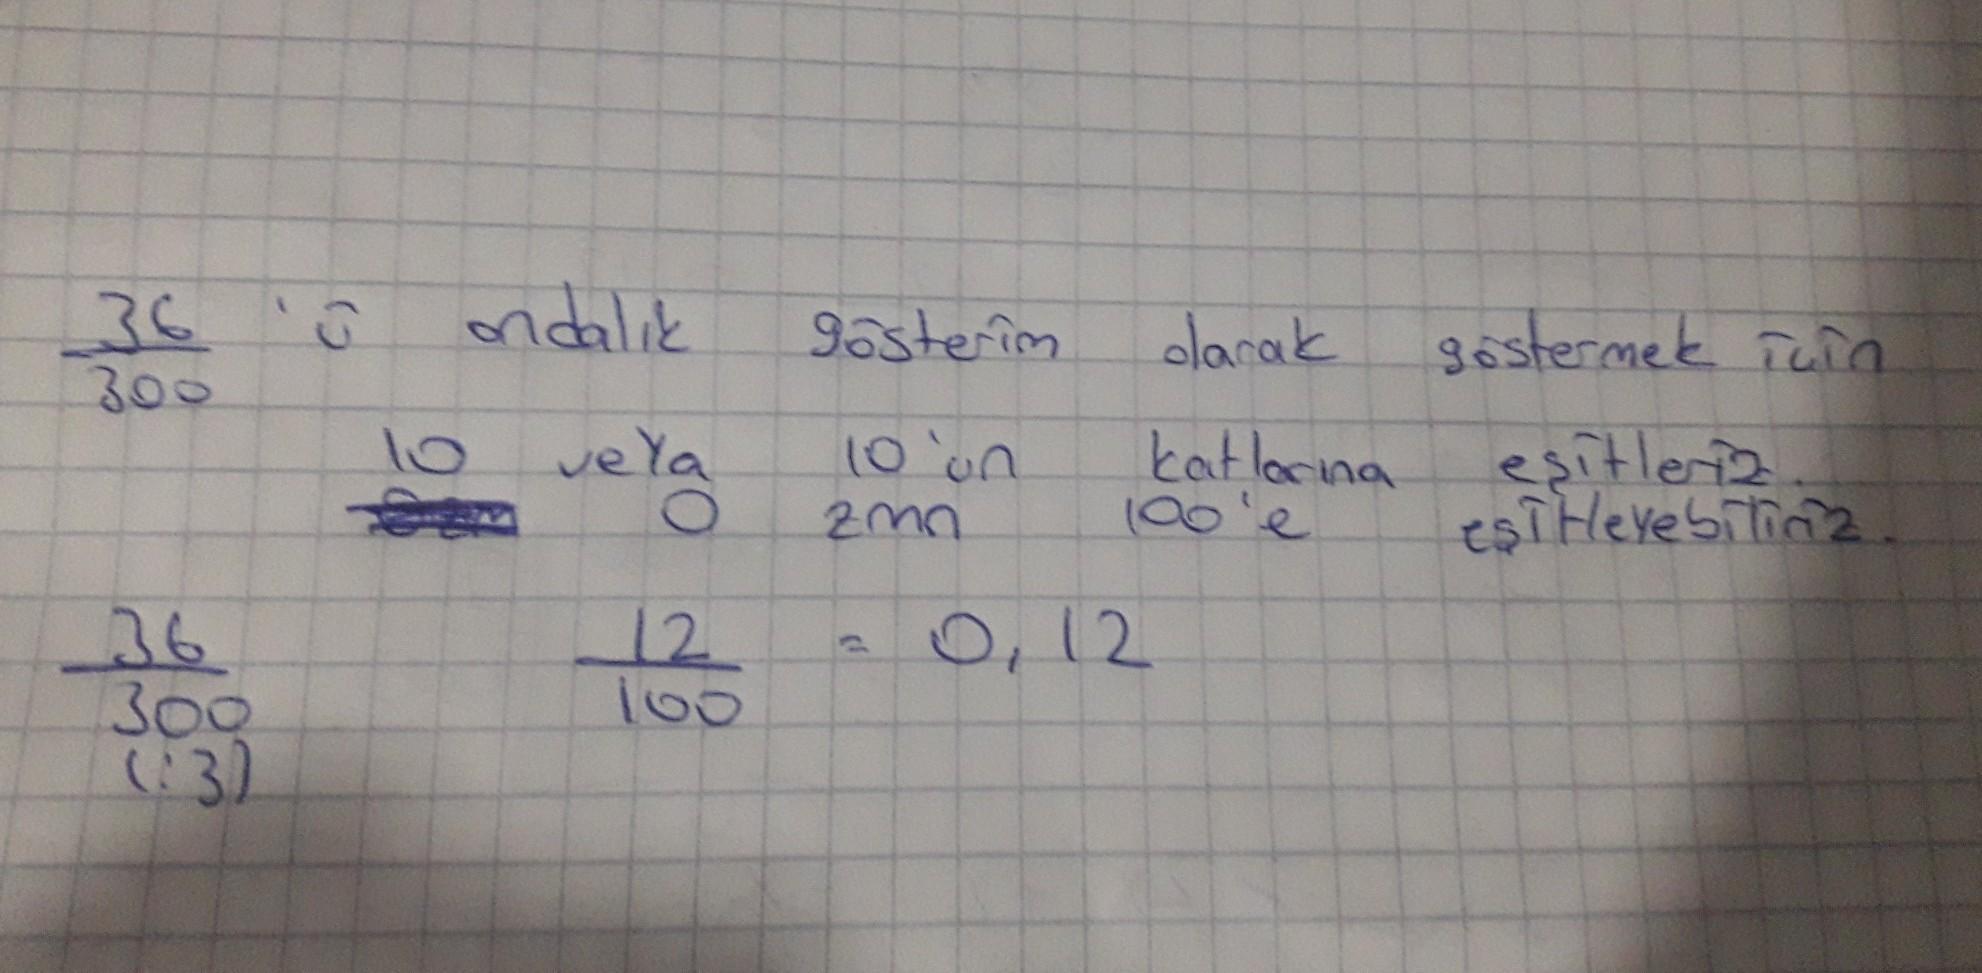 36 'ü ondalık gösterim olarak göstermek için
300
10 veya 10'un katlarına eşitleriz.
O zmn 100'e eşitleyebiliriz.
36 12 = 0,12
300 100
(:3)